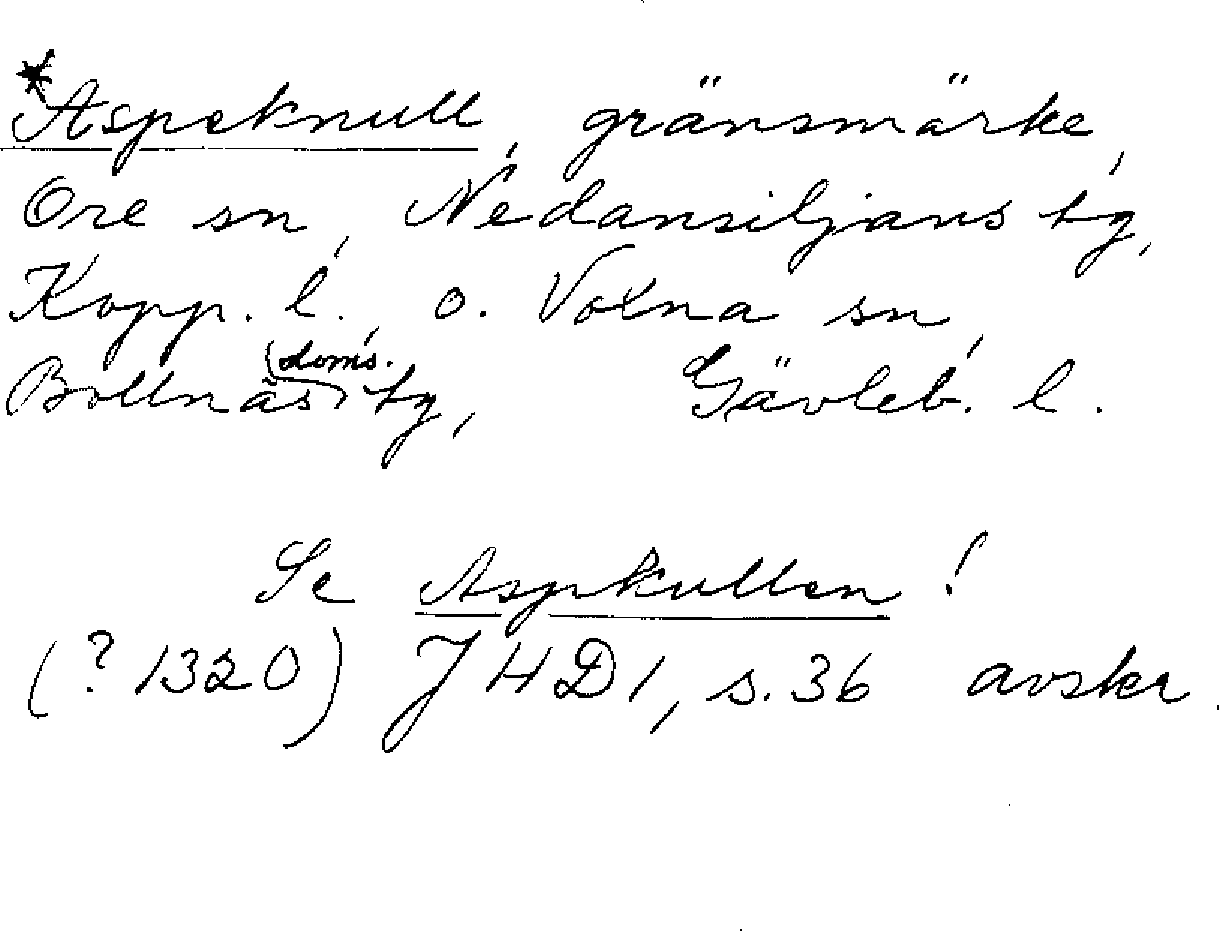 *Aspeknull, gränsmärke,
Ore sn, Nedansiljans tg,
Kopp. l., o. Voxna sn,
Bollnäs doms. tg, Gävleb. l.
Se Aspkullen!
(? 1320) JHD 1, s. 36 avskr.